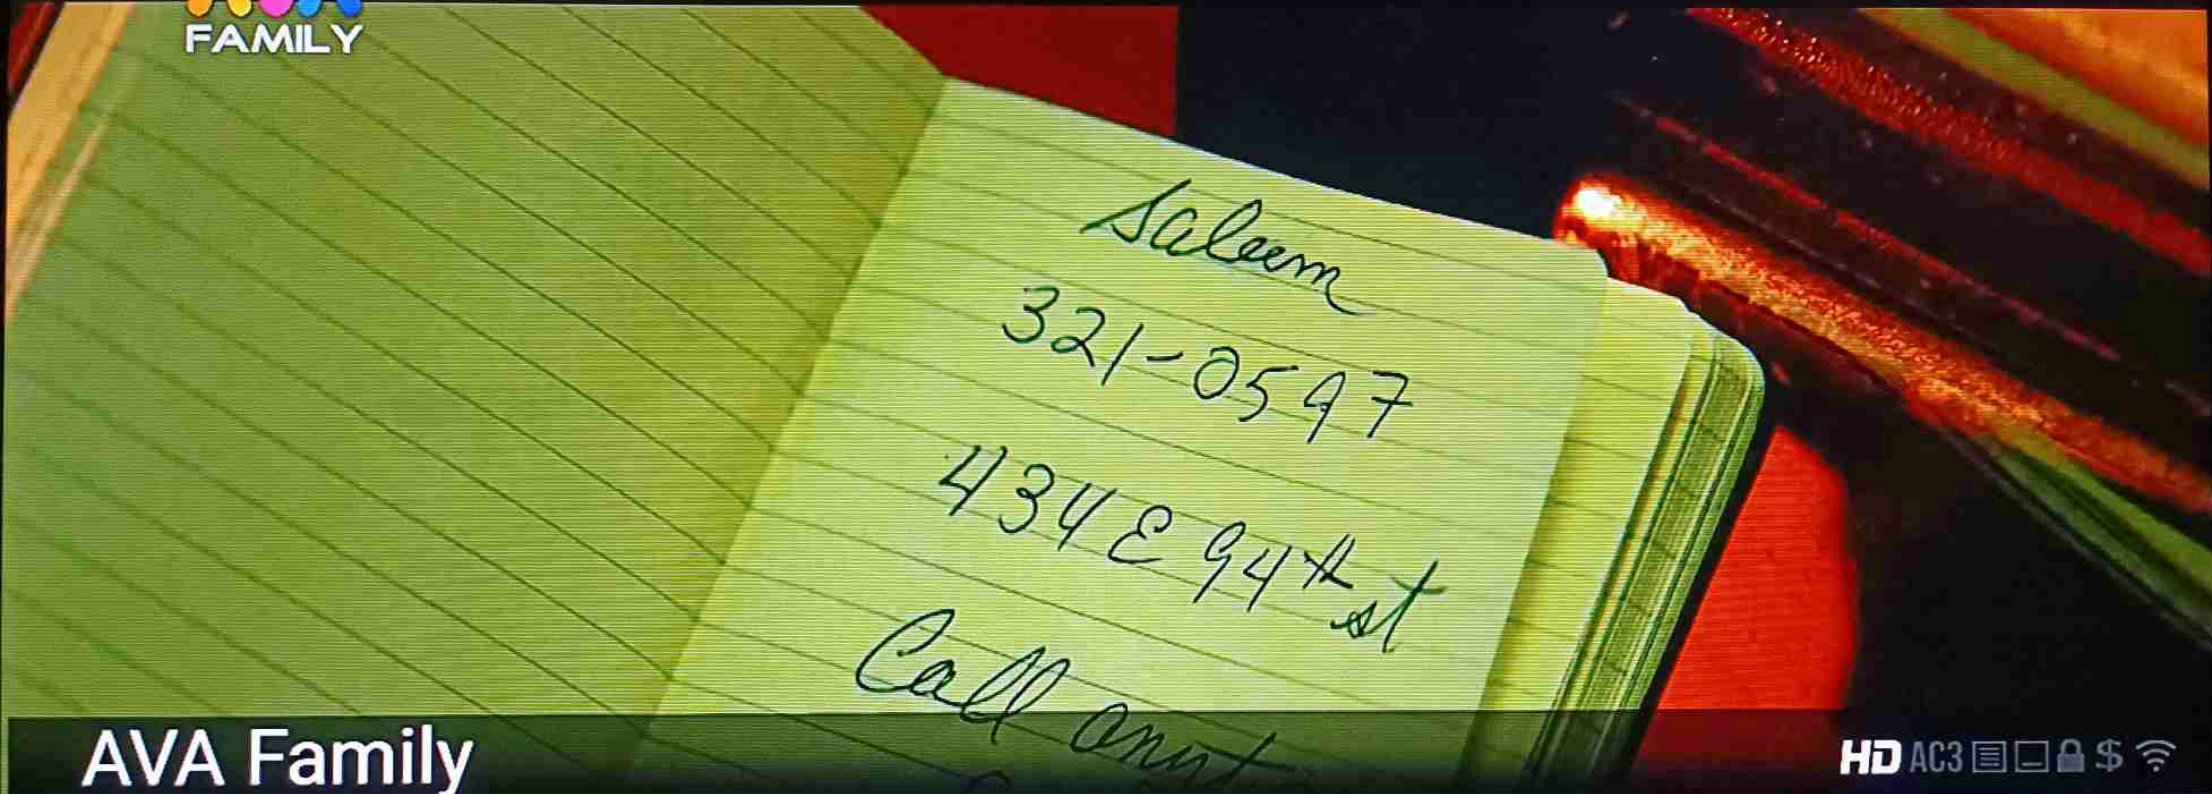 FAMILY
Saleem
321-0597
434 E 94th st
Call
AVA Family
HD AC3 $